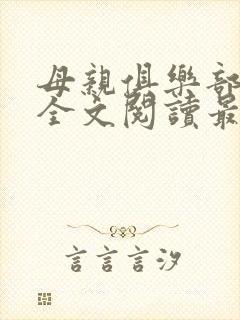 母親俱樂部
全文閱讀最
言言言汐